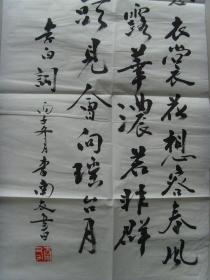 衣裳花想容春風
露華濃若非群
頭見會向瑶台月
李白詞 丙子年月